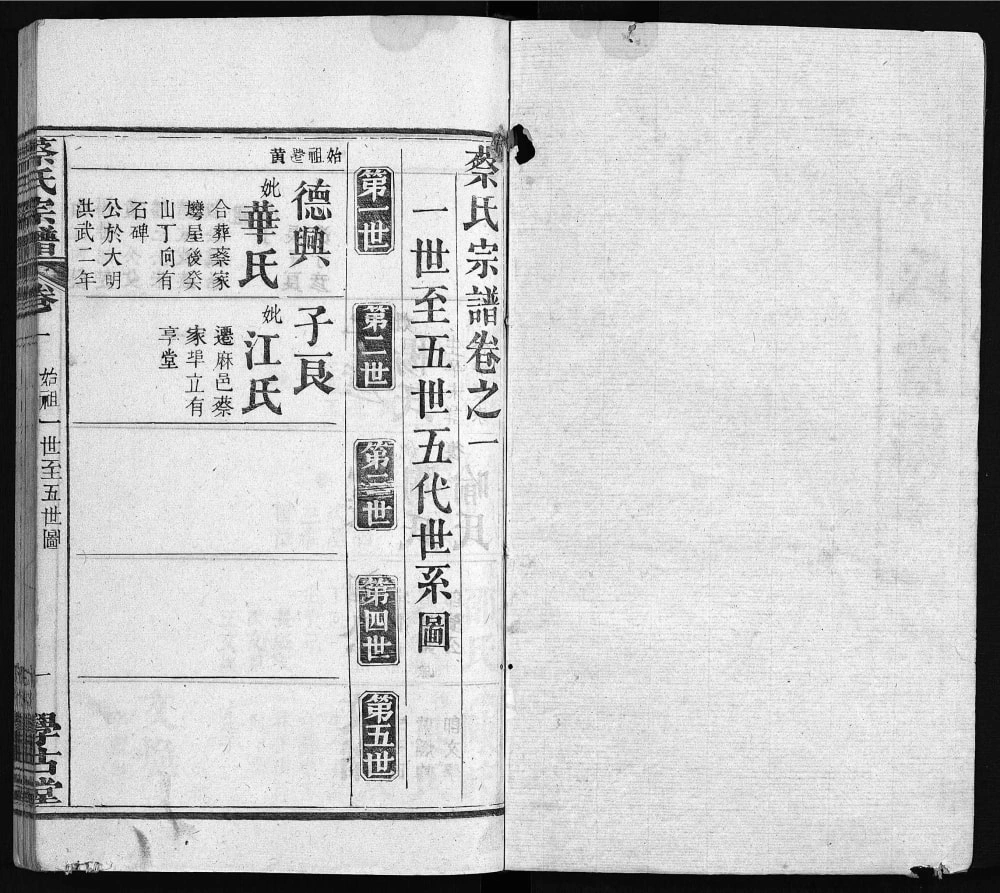 蔡氏宗譜卷之一
一世至五世五代世系圖
第一世
第二世
第三世
第四世
第五世
始祖㘴黃
德興
妣華氏
合葬蔡家
塆屋後癸
山丁向有
石碑
公於大明
洪武二年
子良
妣江氏
遷麻邑蔡
家埠立有
享堂
蔡氏宗譜
卷一
始祖一世至五世圖
一
學古堂